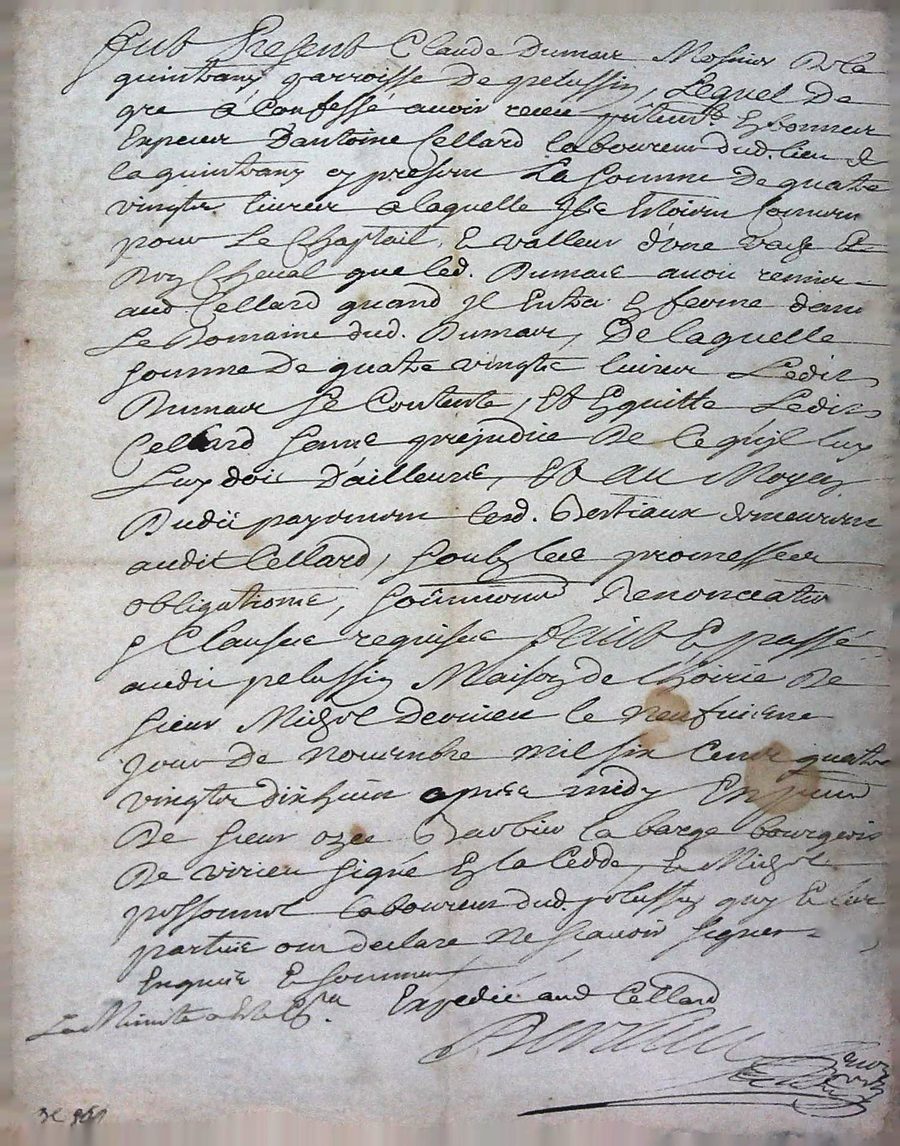 fut Present Claude Dumas Mosnier De la
quintany parroisse De pelussin, Lequel De
gre à confessé avoir receu En bonnes
Especes D'antoine Cellard laboureur dud. lieu de
la quintany cy present La somme De quatre
vingts livres a laquelle Ilz Estoient Convenu
pour Le Chaptail, & valleur d'une vache Et
D'un Cheval que led. Dumas avoit remis
aud Cellard quand Il Entra En ferme dans
Le Domaine dud. Dumas, De laquelle
somme De quatre vingts livres Ledit
Dumas Se Contente, Et Enquitte Ledit
Cellard Sans prejudice De Ce qu'il luy
Luy doit D'ailleurs, Et Au Moyen
Dudit payement lesd. Bestiaux demeurent
audit Cellard, Soubz les promesses
obligations, Renonciations
& Clauses requises fait & passé
audit pelussin Maison de l'hoirie De
Sieur Michel Devirieu le neufviesme
Jour De novembre mil six Cents quatre
vingts dix huit apres midy En presence
De Sieur ozee Barbier la barge bourgeois
De virieu Signé En la Cedde, & Michel
possonnet laboureur dud. pelussin quy & les
parties ont declaré Ne scavoir signer
Enquis & Sommés
La Minute a Expedié aud Cellard
3E 961